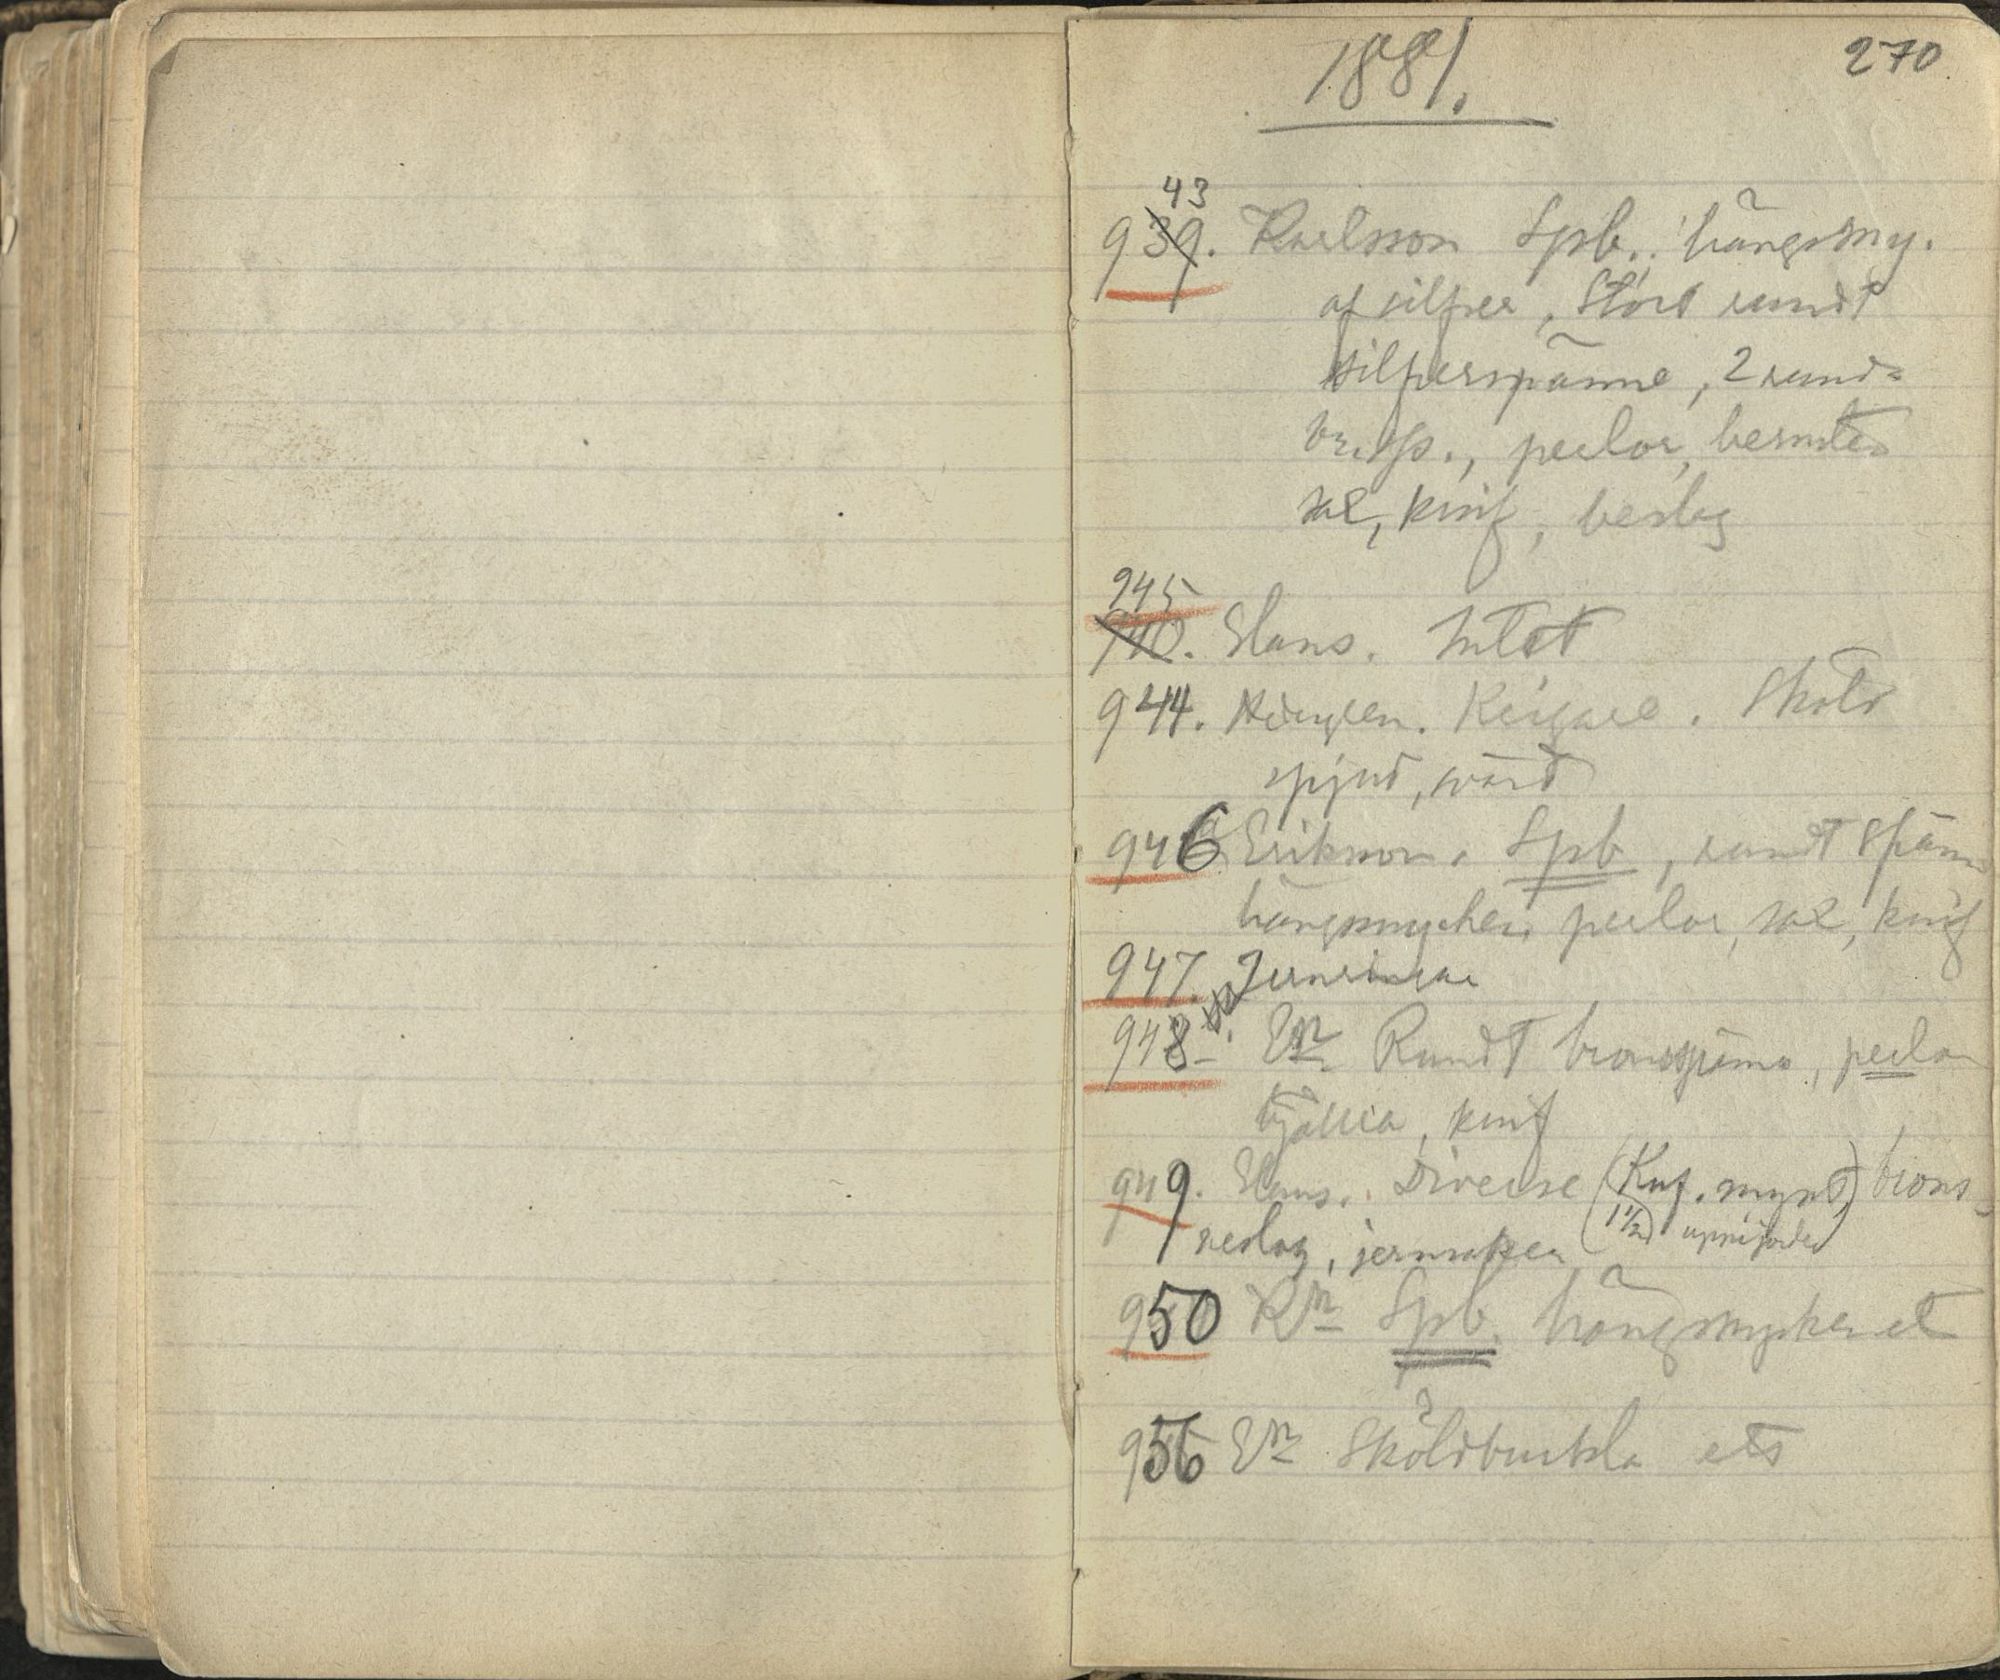 270
1881.
43
939. Karlsson Spb., hängsmy.
af silfver, Stort rundt
silfverspänne, 2 rund-
br. sp., perlor, bernsten
sax, knif, beslag
945
940. Hans. Intet
944. Krigare. Sköld
spjut, svärd
946 Erikson. Spb, rundt spänne
hängsmycken perlor, sax, knif
947.
948 En Rundt bronsspänne, perlor
bjällra, knif
949. Hans. Diverse (Kuf. mynt,) brons-
(1 1/2)
beslag, jernsaker
950 Kn Spb. hängsmycken et
956 En Sköldbuckla etc